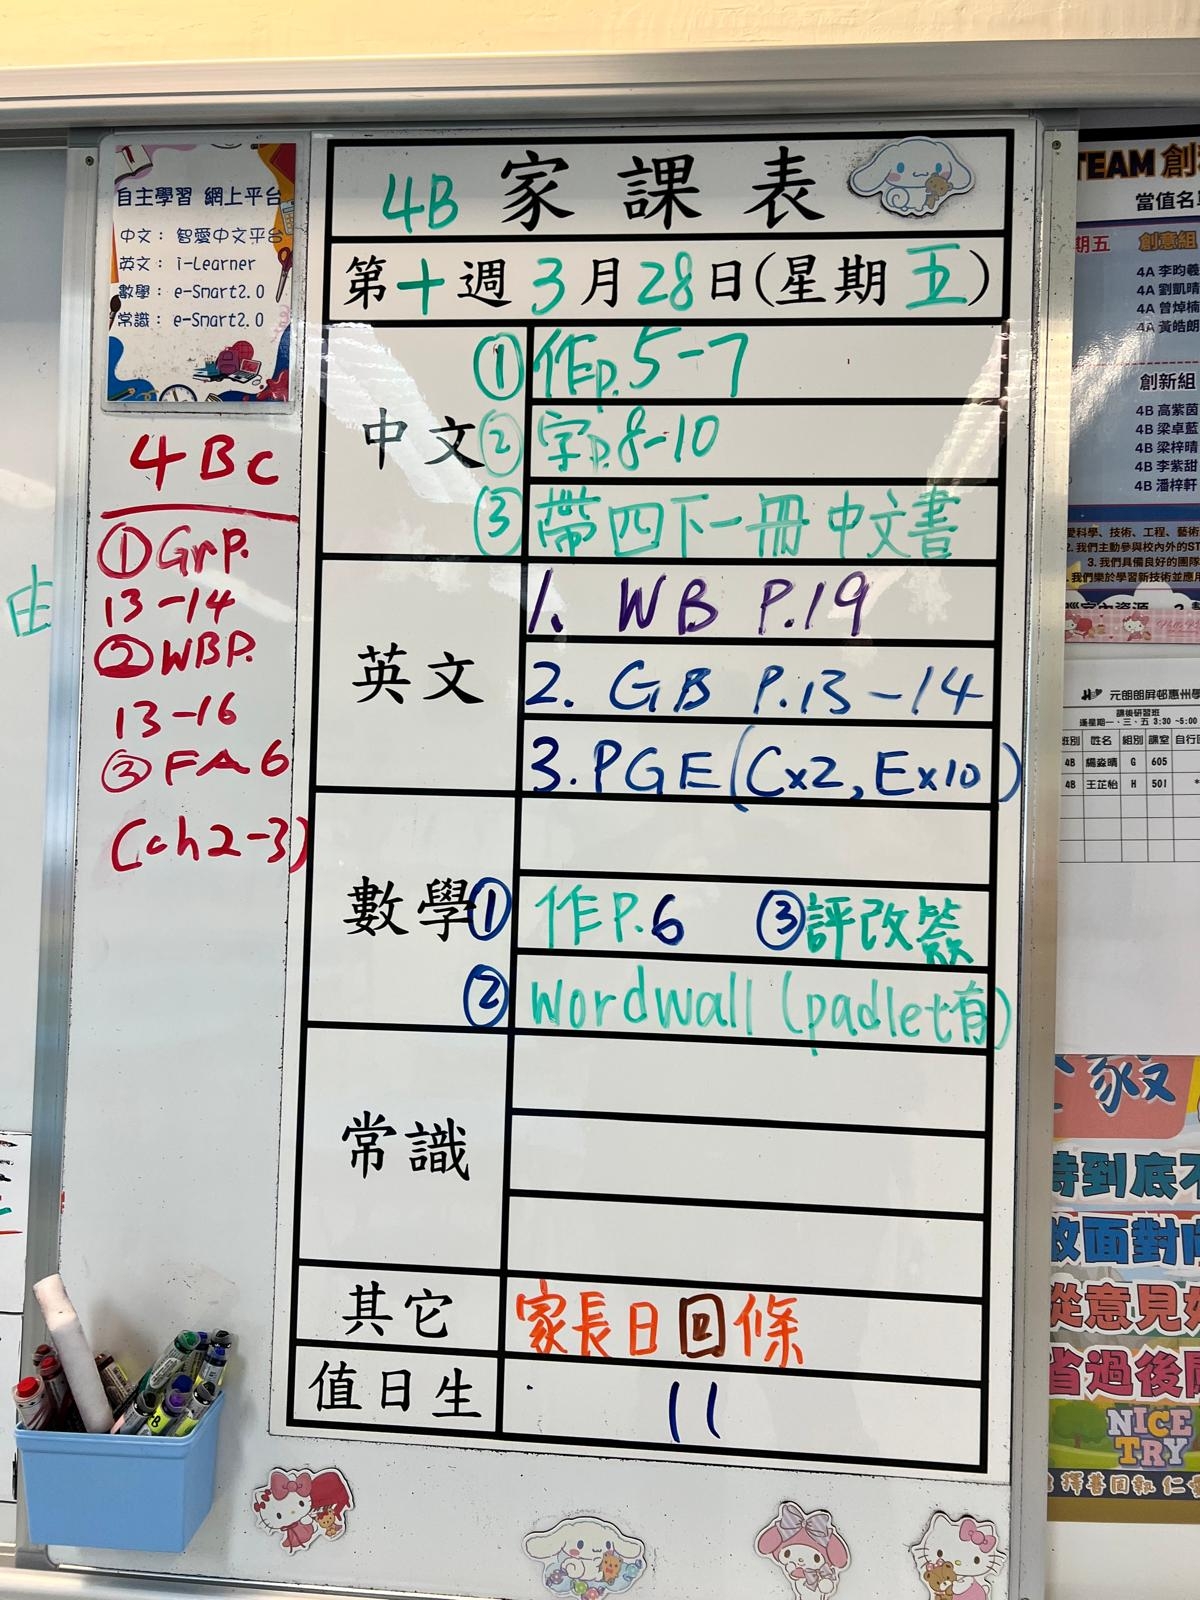 自主學習 網上平台
中文： 智愛中文平台
英文： i-Learner
數學： e-Smart2.0
常識： e-Smart2.0
4Bc
①GrP.
13-14
②WBP.
13-16
③FA6
(ch2-3)
由
4B 家課表
第十週 3月28日(星期五)
中文
①作p.5-7
②字p.8-10
③帶四下一冊中文書
英文
1. WB P.19
2. GB P.13-14
3. PGE(Cx2, Ex10)
數學
①作P.6 ③評改簽
②wordwall (padlet有)
常識
其它
家長日回條
值日生
11
TEAM 創
當值名單
期五 創意組
4A 李昀羲
4A 劉凱晴
4A 曾焯楠
4A 黃皓朗
創新組
4B 高紫茵
4B 梁卓藍
4B 梁梓晴
4B 李紫甜
4B 潘梓軒
愛科學、技術、工程、藝術
2. 我們主動參與校內外的ST
3. 我們具備良好的團隊
我們樂於學習新技術並應用
元朗朗屏邨惠州學
課後研習班
逢星期一、三、五 3:30 ~5:00
班別 姓名 組別 課室 自行
4B 楊焱晴 G 605
4B 王芷怡 H 501 *
持到底不
敢面對
從意見
省過後
NICE
TRY
擇善固執 仁